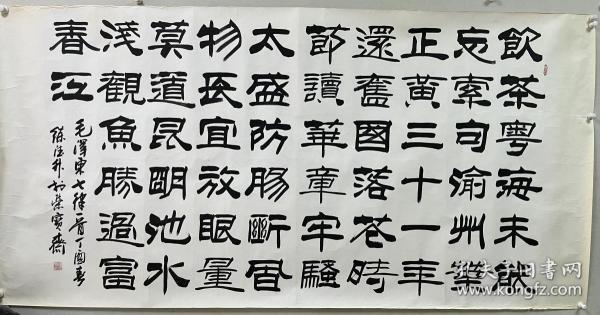 飲茶粤海未能
忘索句渝州葉
正黃三十一年
還舊國落花時
節讀華章牢騷
太盛防腸斷風
物長宜放眼量
莫道昆明池水
淺觀魚勝過富
春江
毛澤東七律一首丁酉春
於榮寶齋
孔夫子旧書网
www.kongfz.com